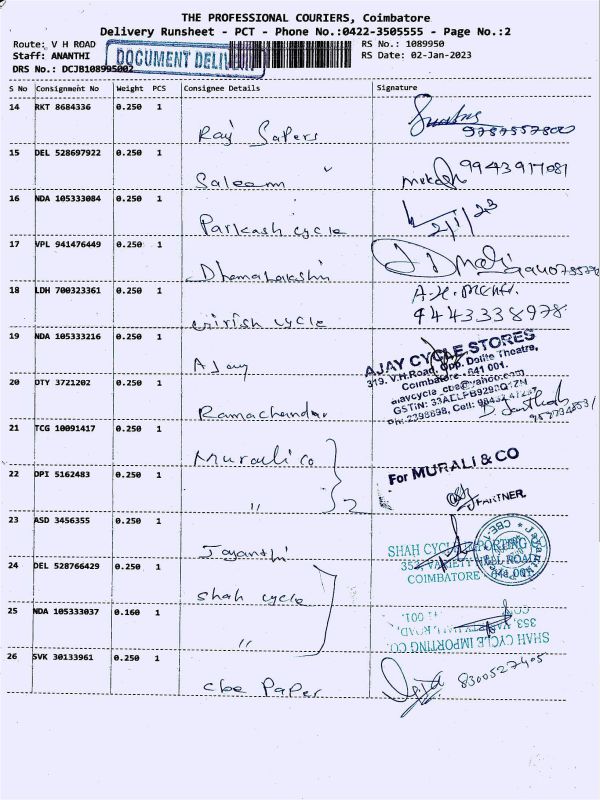 THE PROFESSIONAL COURIERS, Coimbatore
Delivery Runsheet - PCT - Phone No.:0422-3505555 - Page No.:2
Route: V H ROAD RS No.: 1089950
Staff: ANANTHI DOCUMENT RS Date: 02-Jan-2023
DRS No.: DCJB108995002
S No Consignment No Weight PCS Consignee Details Signature
14 RKT 8684336 0.250 1
Raj Sapers
15 DEL 528697922 0.250 1
Saleem Mukesh 9943917081
16 NDA 105333084 0.250 1
Parkash cycle 2/1/23
17 VPL 941476449 0.250 1
Dhanalakshmi
18 LDH 700323361 0.250 1
Girish cycle 9443338978
19 NDA 105333216 0.250 1
Ajay
AJAY CYCLE STORES
319, V.H.Road, Opp. Delite Theatre,
Coimbatore - 641 001.
ajaycycle_cbe@yahoo.com
20 DTY 3721202 0.250 1
Ramachandar
21 TCG 10091417 0.250 1
Murali co
For MURALI & CO
22 DPI 5162483 0.250 1
" 2
PARTNER.
23 ASD 3456355 0.250 1
Jayanthi
SHAH CYCLE IMPORTING CO.
353, VARIETY HALL ROAD,
COIMBATORE - 641 001
24 DEL 528766429 0.250 1
Shah cycle
25 NDA 105333037 0.160 1
"
SHAH CYCLE IMPORTING CO.
353, VARIETY HALL ROAD,
26 SVK 30133961 0.250 1
cbe Paper 8300527405